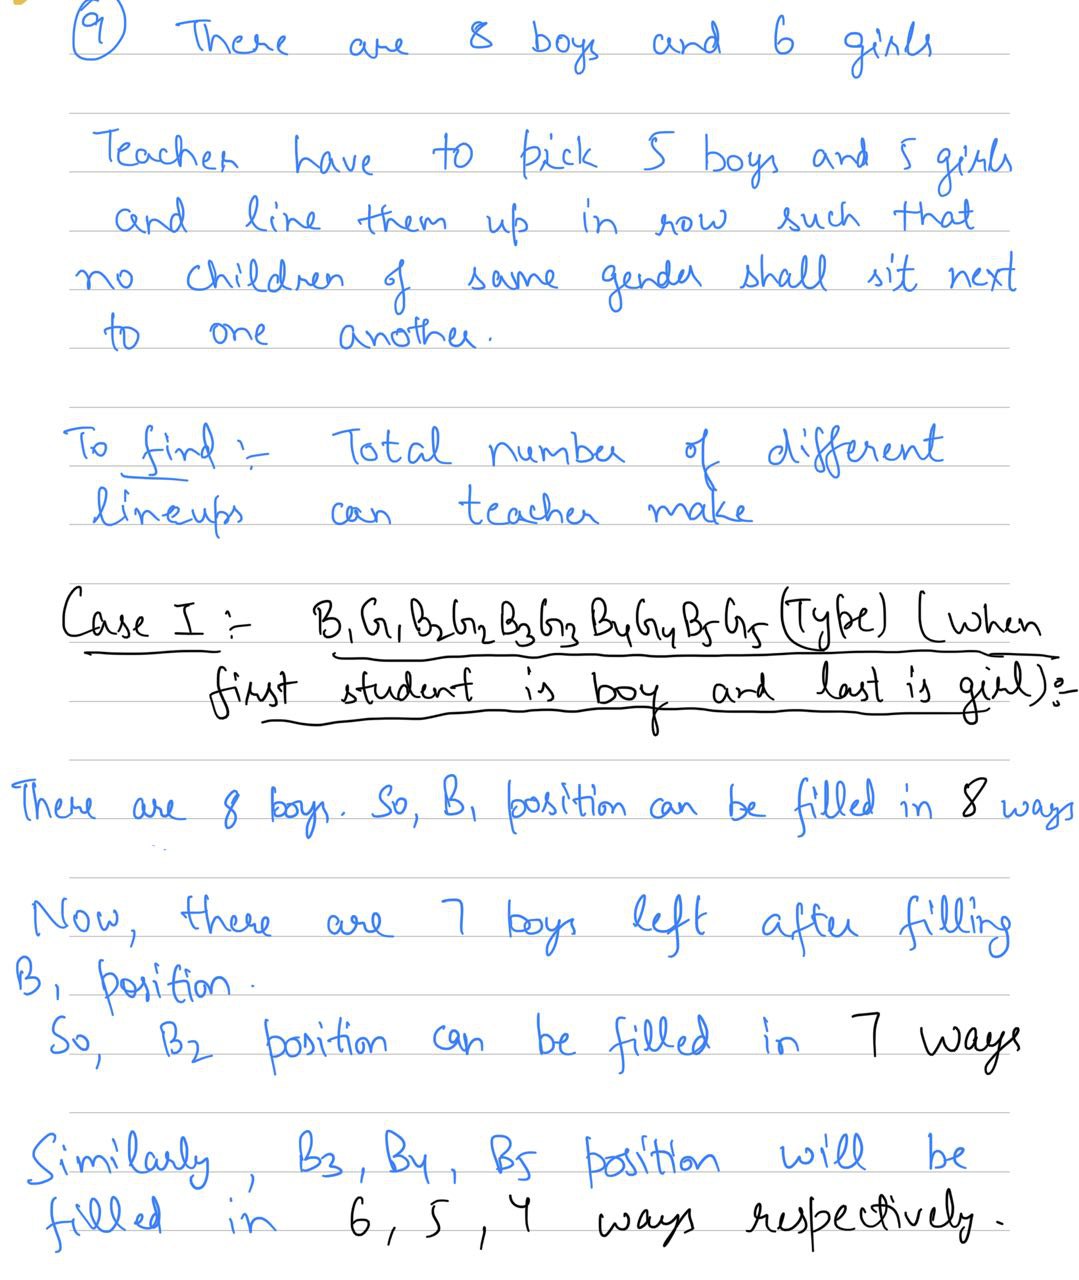 9 There are 8 boys and 6 girls
Teacher have to pick 5 boys and 5 girls
and line them up in row such that
no children of same gender shall sit next
to one another.
To find :- Total number of different
lineups can teacher make
Case I :- B₁G₁B₂G₂B₃G₃B₄G₄B₅G₅ (Type) (when
first student is boy and last is girl):-
There are 8 boys. So, B₁ position can be filled in 8 ways
Now, there are 7 boys left after filling
B₁ position.
So, B₂ position can be filled in 7 ways
Similarly, B₃, B₄, B₅ position will be
filled in 6, 5, 4 ways respectively.